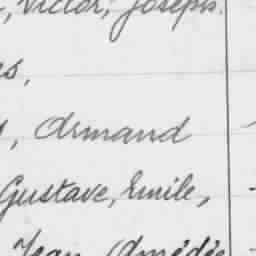 Victor, Joseph.
es,
, Armand
Gustave, Emile,
Jean, Amédée